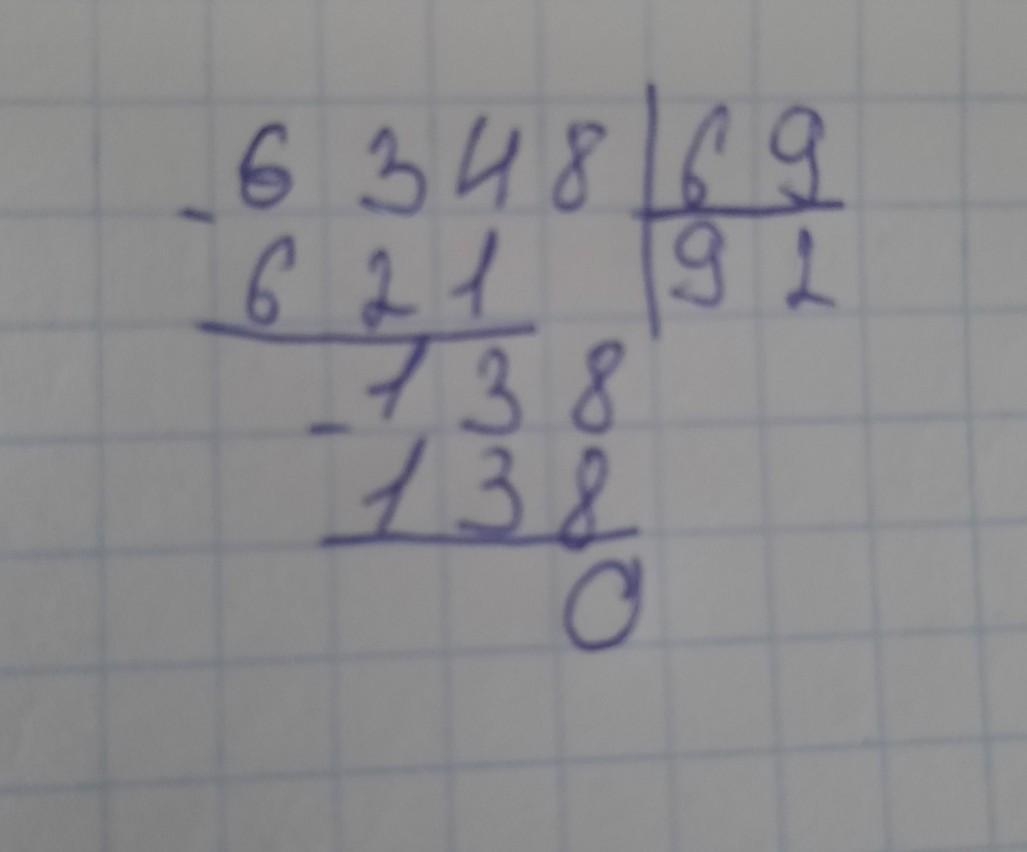 - 6348 | 69
621 | 92
- 138
138
0